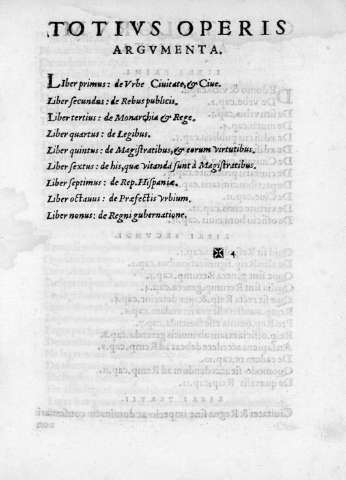 TOTIVS OPERIS
ARGVMENTA.
LIber primus: de Vrbe Ciuitate, & Ciue.
Liber secundus: de Rebus publicis.
Liber tertius: de Monarchia & Rege.
Liber quartus: de Legibus.
Liber quintus: de Magistratibus, & eorum virtutibus.
Liber sextus: de his, quæ vitanda sunt à Magistratibus.
Liber septimus: de Rep. Hispaniæ.
Liber octauus: de Præfectis Vrbium.
Liber nonus: de Regni gubernatione.
✠ 4